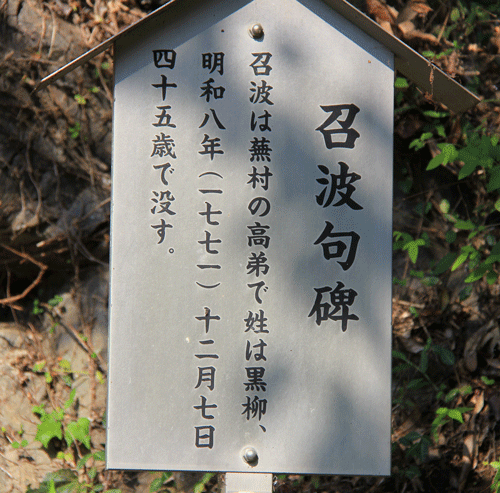 召波句碑
召波は蕪村の高弟で姓は黒柳、
明和八年（一七七一）十二月七日
四十五歳で没す。